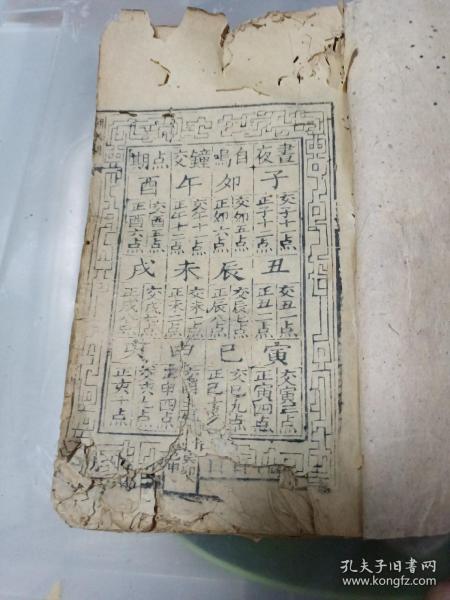 晝夜自鳴鐘交点期
子
交子十一点
正子十二点
丑
交丑一点
正丑二点
寅
交寅三点
正寅四点
卯
交卯五点
正卯六点
辰
交辰七点
正辰八点
巳
交巳九点
正巳
午
交午十一点
正午十二点
未
交未一点
正未二点
申
正申四点
酉
交酉五点
正酉六点
戌
交戌点
正戌点
亥
交亥点
正亥十点
孔夫子旧书网
www.kongfz.com